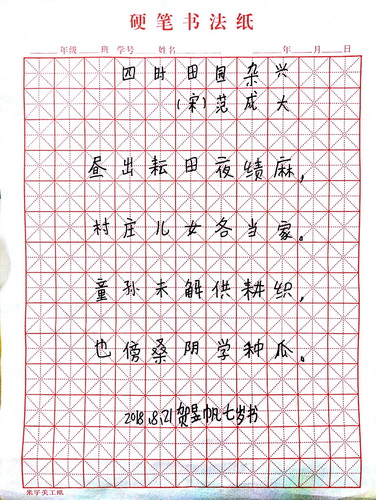 硬笔书法纸
年级 班 学号 姓名 年 月 日
四时田园杂兴
(宋)范成大
昼出耘田夜绩麻,
村庄儿女各当家。
童孙未解供耕织,
也傍桑阴学种瓜。
2018.8.21 贺昱帆七岁书
米字美工纸